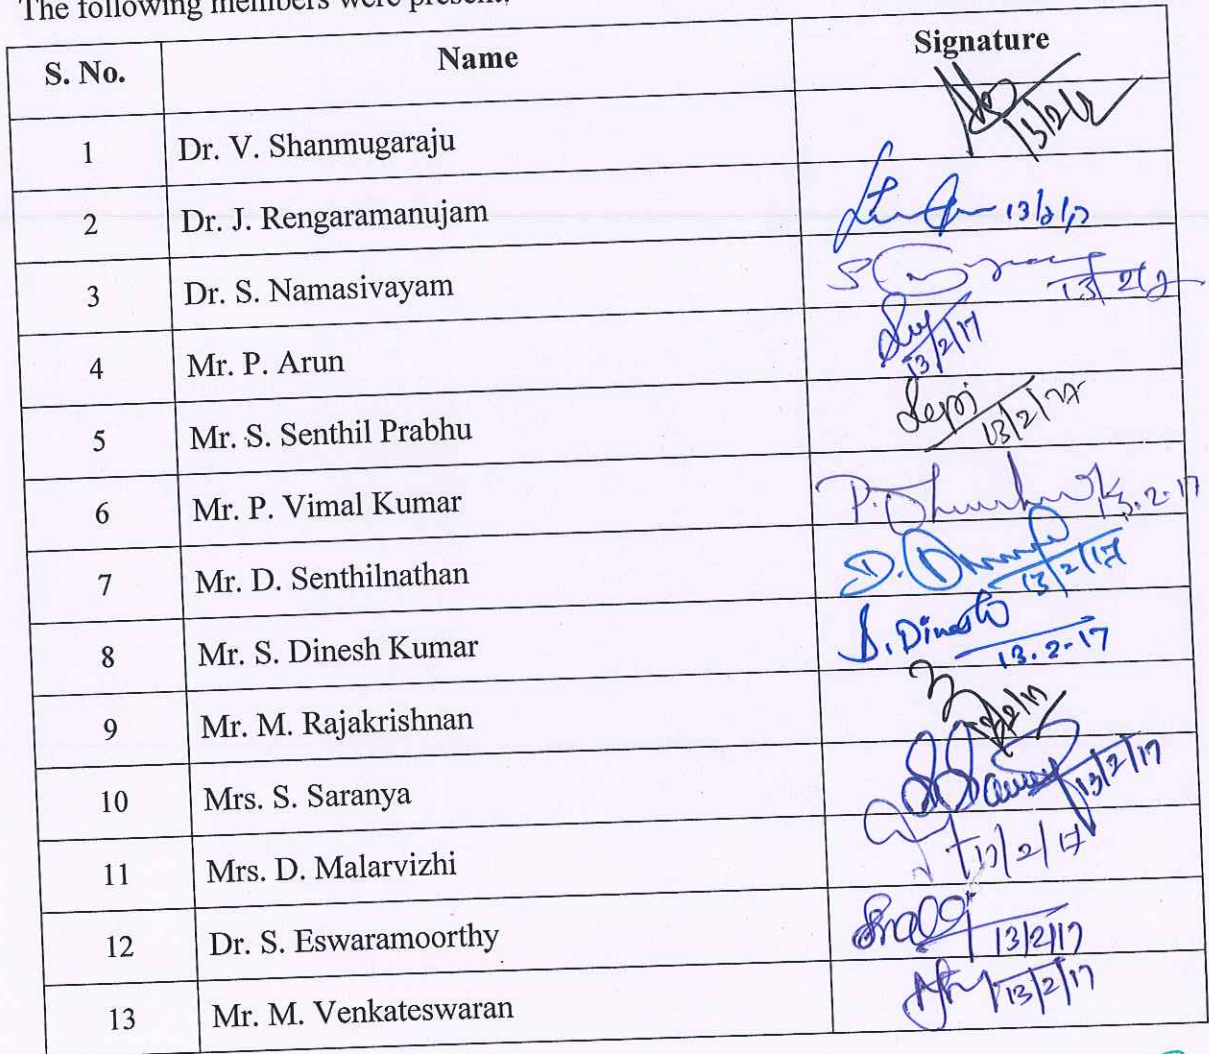 The following members were present,
S. No. Name Signature
1 Dr. V. Shanmugaraju 13/2/17
2 Dr. J. Rengaramanujam 13/2/17
3 Dr. S. Namasivayam 13/2/17
4 Mr. P. Arun 13/2/17
5 Mr. S. Senthil Prabhu 13/2/17
6 Mr. P. Vimal Kumar 13.2.17
7 Mr. D. Senthilnathan 13/2/17
8 Mr. S. Dinesh Kumar S. Dinesh 13.2.17
9 Mr. M. Rajakrishnan
10 Mrs. S. Saranya 13/2/17
11 Mrs. D. Malarvizhi 13/2/17
12 Dr. S. Eswaramoorthy 13/2/17
13 Mr. M. Venkateswaran 13/2/17